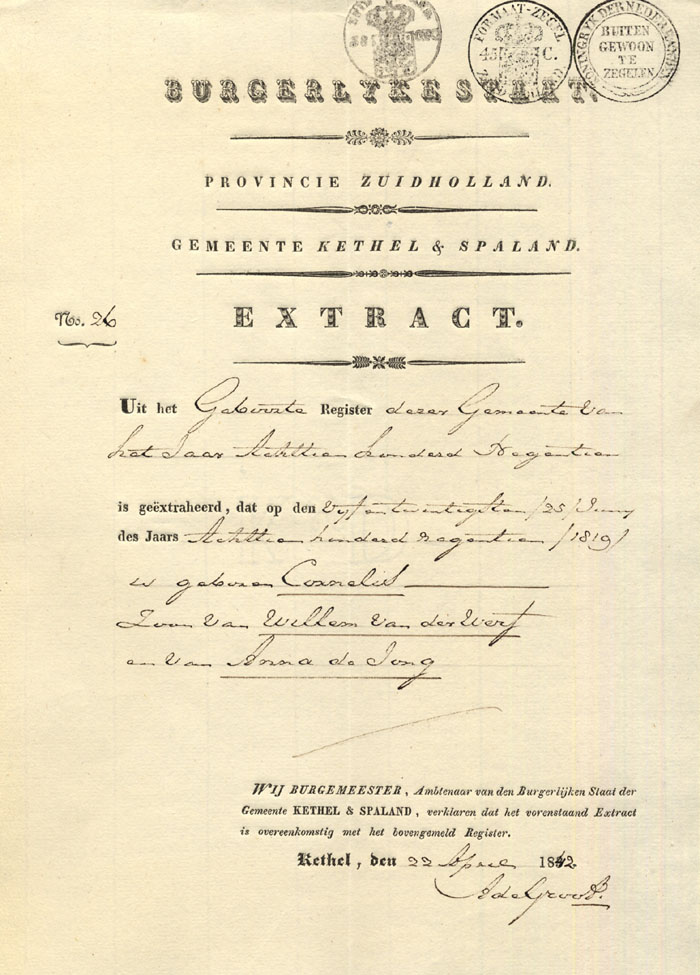 FORMAAT-ZEGEL
45 C.
KONINGRYK DER NEDERLANDEN
BUITEN
GEWOON
TE
ZEGELEN
BURGERLYKE STAAT.
PROVINCIE ZUIDHOLLAND.
GEMEENTE KETHEL & SPALAND.
No. 26
EXTRACT.
Uit het Geboorte Register dezer Gemeente van
het Jaar Achttien honderd Negentien
is geëxtraheerd, dat op den Vyf en twintigsten /25/ Juny
des Jaars Achttien honderd negentien /1819/
is geboren Cornelis
Zoon van Willem van der Werf
en van Anna de Jong
WIJ BURGEMEESTER, Ambtenaar van den Burgerlijken Staat der
Gemeente KETHEL & SPALAND, verklaren dat het vorenstaand Extract
is overeenkomstig met het bovengemeld Register.
Kethel, den 22 April 1842
A de Groot